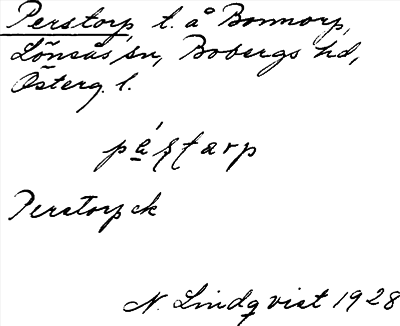 Perstorp t. å Bonnorp,
Lönsås sn, Bobergs hd,
Österg. l.
Perstorp ek
N. Lindqvist 1928